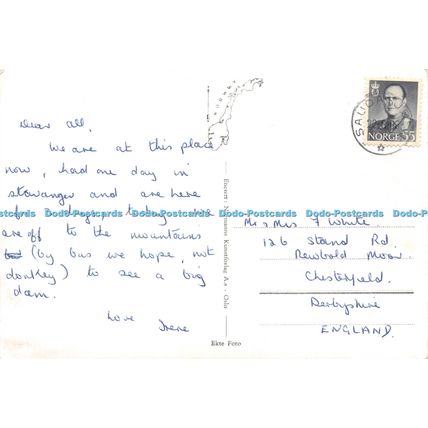 Dear all,
We are at this place
now, had one day in
stavanger and are here
are off to the mountains
(by bus we hope, not
donkey) to see a big
dam.
Love
Irene
NORGE 55
Enerett: Normanns Kunstforlag A.s - Oslo
Ekte Foto
Mr & Mrs F White.
126 Stand Rd.
Newbold Moor.
Chesterfield.
Derbyshire
ENGLAND.
Dodo-Postcards Dodo-Postcards Dodo-Postcards Dodo-Postcards Dodo-Postcards
Dodo-Postcards Dodo-Postcards Dodo-Postcards Dodo-Postcards Dodo-Postcards